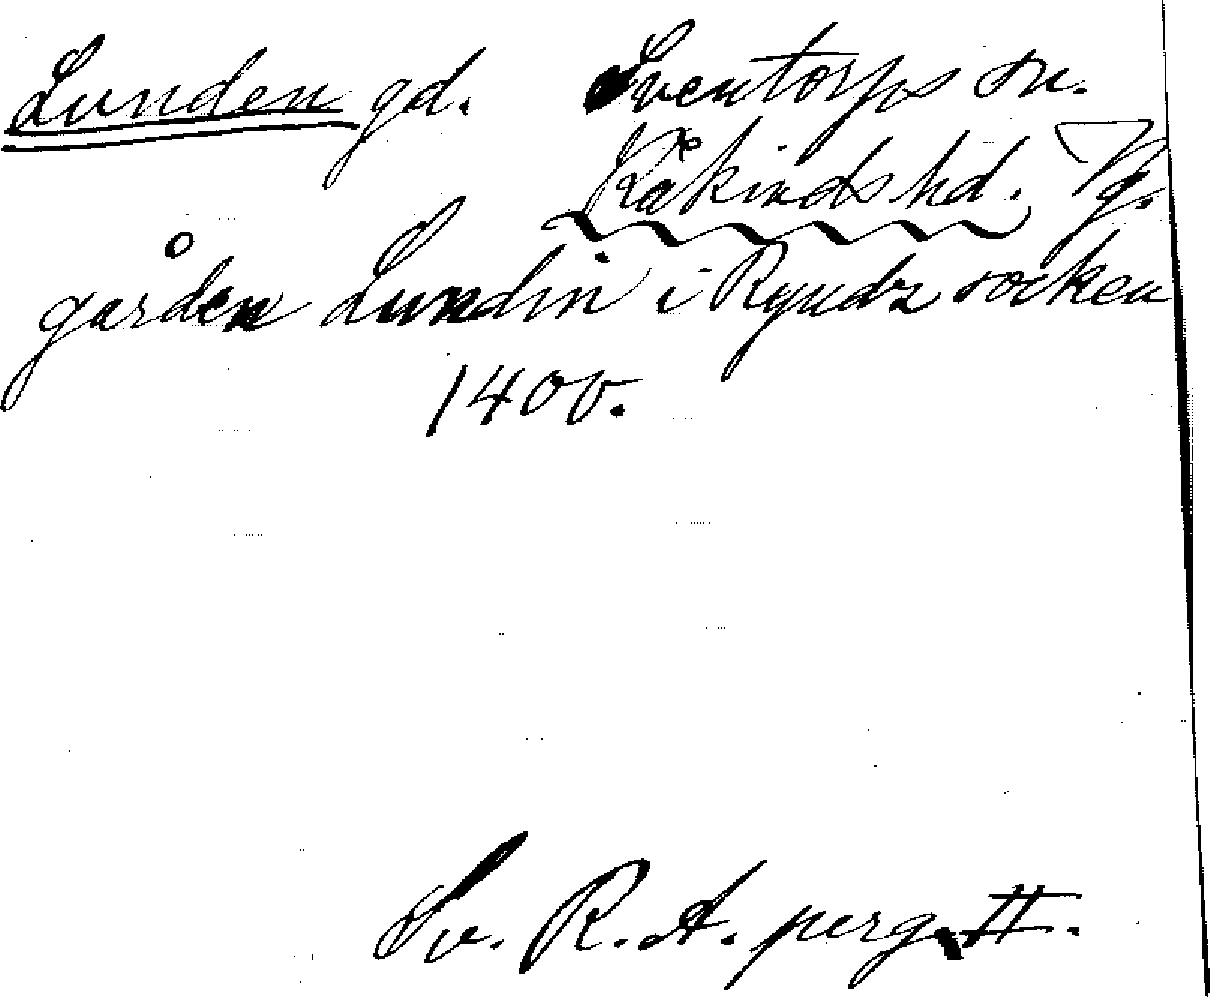 Lunden gd. Sventorps sn.
Kåkinds hd. Vg.
gården Lundin i Ryndz socken
1400.
Sv. R. A. perg. II.